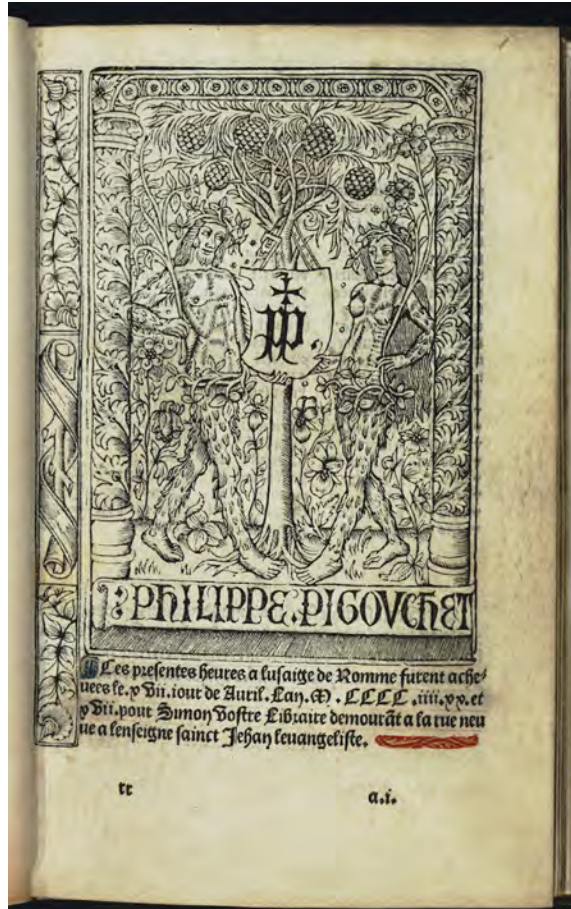 pp
PHILIPPE PIGOVCHET
Ces presentes heures a lusaige de Romme furent ache
uees le. xvii. iour de Auril. Lan. M. CCCC. iiii.xx. et
xvii. pour Simon Vostre Libraire demourāt a la rue neu
ue a lenseigne sainct Jehan leuangeliste.
rr
a.i.